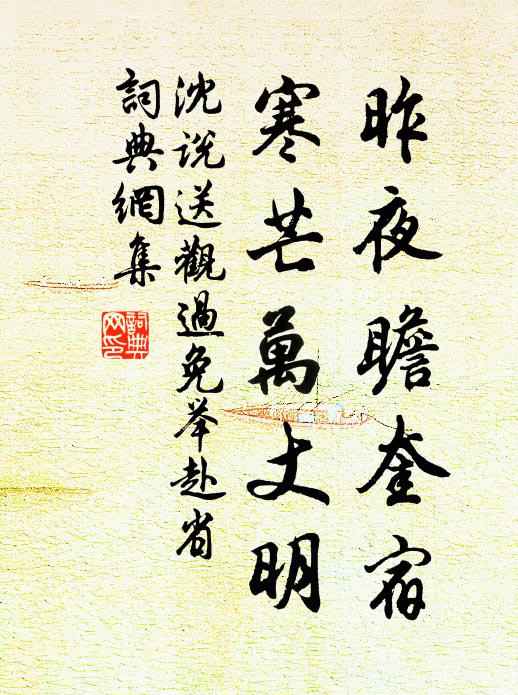 昨夜瞻奎宿
寒芒萬丈明
沈说送觀過免举赴省
詞典網集
詞典网印